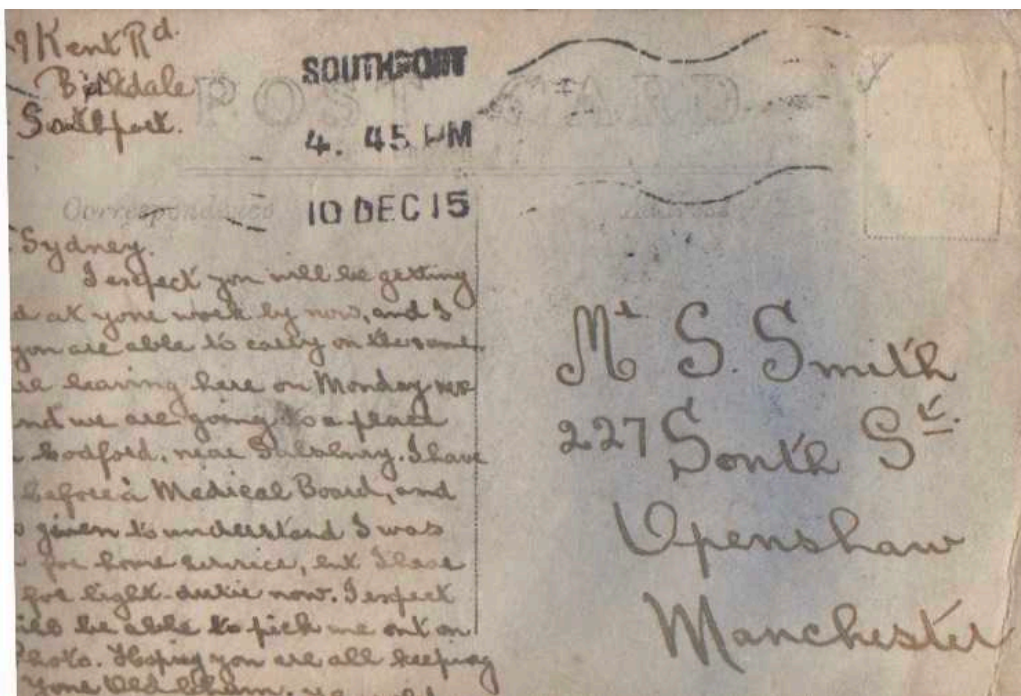 9 Kent Rd.
Birkdale
Southport.
SOUTHPORT
4. 45 PM
10 DEC 15
POST CARD
Correspondence
Address
Sydney.
I expect you will be getting
at your work by now, and I
you are able to carry on the same.
leaving here on Monday
and we are going to a place
Codford, near Salsbury. I have
before a Medical Board, and
given to understand I was
for home service, but I have
for light-dutie now. I expect
be able to pick me out on
Photo. Hoping you are all keeping
your Old Chum.
Mr S. Smith
227 South St.
Openshaw
Manchester